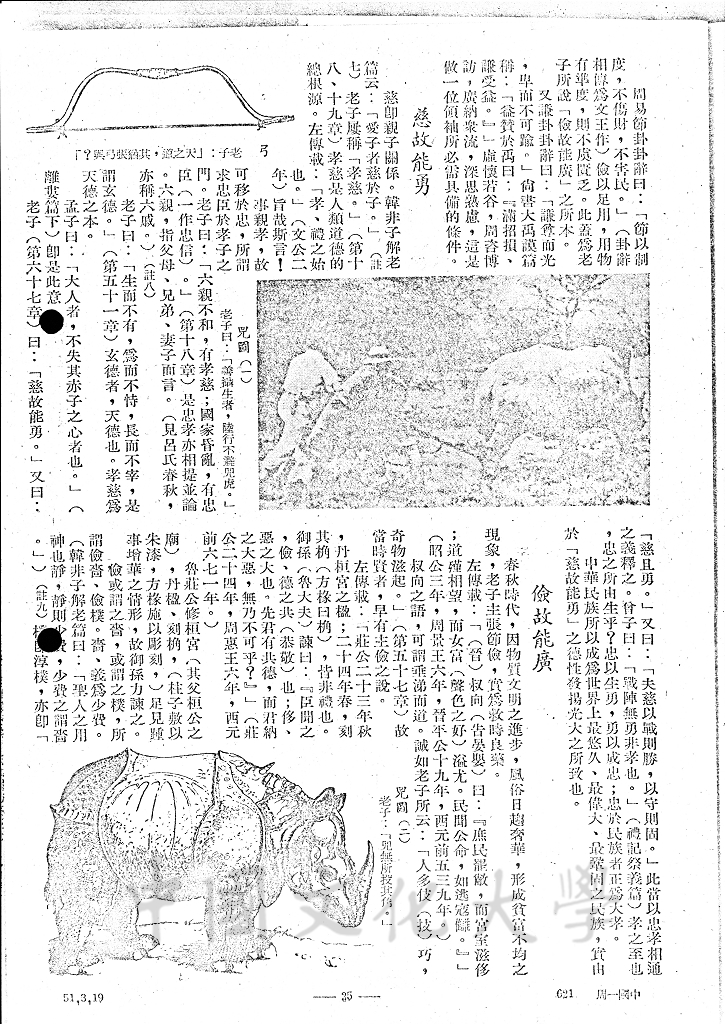 周易節卦卦辭曰:「節以制
度,不傷財,不害民。」(卦辭
相傳爲文王作)儉以足用,用物
有準度,則不虞匱乏。此蓋爲老
子所說「儉故能廣」之所本。
又謙卦卦辭曰:「謙尊而光
,卑而不可踰。」尚書大禹謨篇
稱:「益贊於禹曰:『滿招損、
謙受益。』」虛懷若谷,周咨博
訪,廣納衆流,深思熟慮,這是
做一位領袖所必需具備的條件。
慈故能勇
慈即親子關係。韓非子解老
篇云:「愛子者慈於子。」(註
七)老子屢稱「孝慈。」(第十
八、十九章)孝慈是人類道德的
總根源。左傳載:「孝、禮之始
也。」(文公二
年)旨哉斯言!
事親孝,故
可移於忠,所謂
求忠臣於孝子之
門。老子曰:「六親不和,有孝慈;國家昏亂,有忠
臣(一作忠信)。」(第十八章)是忠孝亦相提並論
。六親,指父母、兄弟、妻子而言。(見呂氏春秋,
亦稱六戚。)(註八)
老子曰:「生而不有,爲而不恃,長而不宰,是
謂玄德。」(第五十一章)玄德者,天德也。孝慈爲
天德之本。
孟子曰:「大人者,不失其赤子之心者也。」(
離婁篇下)即是此意
老子(第六十七章)曰:「慈故能勇。」又曰:
弓
老子:「天之道,其猶張弓與?」
兕圖(一)
老子曰:「善攝生者,陸行不離兕虎。」
「慈且勇。」又曰:「夫慈以戰則勝,以守則固。」此當以忠孝相通
之義釋之。曾子曰:「戰陣無勇非孝也。」(禮記祭義篇)孝之至也
,忠之所由生乎?忠以生勇,勇以成忠;忠於民族者正爲大孝。
中華民族所以成爲世界上最悠久、最偉大、最鞏固之民族,實由
於「慈故能勇」之德性發揚光大之所致也。
儉故能廣
春秋時代,因物質文明之進步,風俗日趨奢華,形成貧富不均之
現象,老子主張節儉,實爲救時良藥。
左傳載:「(晉)叔向(告晏嬰)曰:『庶民罷敝,而宮室滋侈
;道殣相望,而女富(聲色之好)溢尤。民聞公命,如逃寇讎。』」
(昭公三年,周景王六年,晉平公十九年,西元前五三九年。)
叔向之語,可謂垂涕而道。誠如老子所云:「人多伎(技)巧,
奇物滋起。」(第五十七章)故
當時賢者,早有主儉之說。
左傳載:「莊公二十三年秋
,丹桓宮之楹;二十四年春,刻
其桷(方椽曰桷),皆非禮也。
御孫(魯大夫)諫曰:『臣聞之
,儉、德之共(恭敬)也;侈、
惡之大也。先君有共德,而君納
之大惡,無乃不可乎?』」(莊
公二十四年,周惠王六年,西元
前六七一年。)
魯莊公修桓宮(其父桓公之
廟),丹楹、刻桷,(柱子敷以
朱漆,方椽施以彫刻,)足見踵
事增華之情形,故御孫力諫之。
儉或謂之嗇,或謂之樸,所
謂儉嗇、儉樸。嗇、義爲少費。
(韓非子解老篇曰:「聖人之用
神也靜,靜則少費,少費之謂嗇
。」)(註九)樸曰淳樸,亦即「
兕圖(二)
老子:「兕無所投其角。」
中國文化大學
51,3,19
— 35 —
621 周一國中